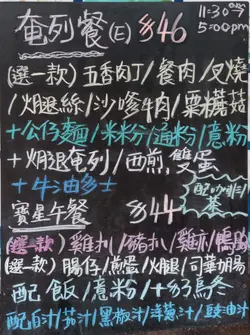 奄列餐(E) $46
11:30am
5:00pm
(選一款) 五香肉丁/餐肉/叉燒
/火腿絲/沙嗲牛肉/粟米蘑菇
+公仔麵/米粉/通粉/意粉
+焗腿奄列/西煎雙蛋
+牛油多士
配咖啡/茶
寶星午餐 $44
(選一款) 雞扒/豬扒/雞亦/鴨胸
(選一款) 腸仔/煎蛋/火腿/司華力腸
配飯/意粉/+$3烏冬
配白汁/茄汁/黑椒汁/洋蔥汁/豉油汁